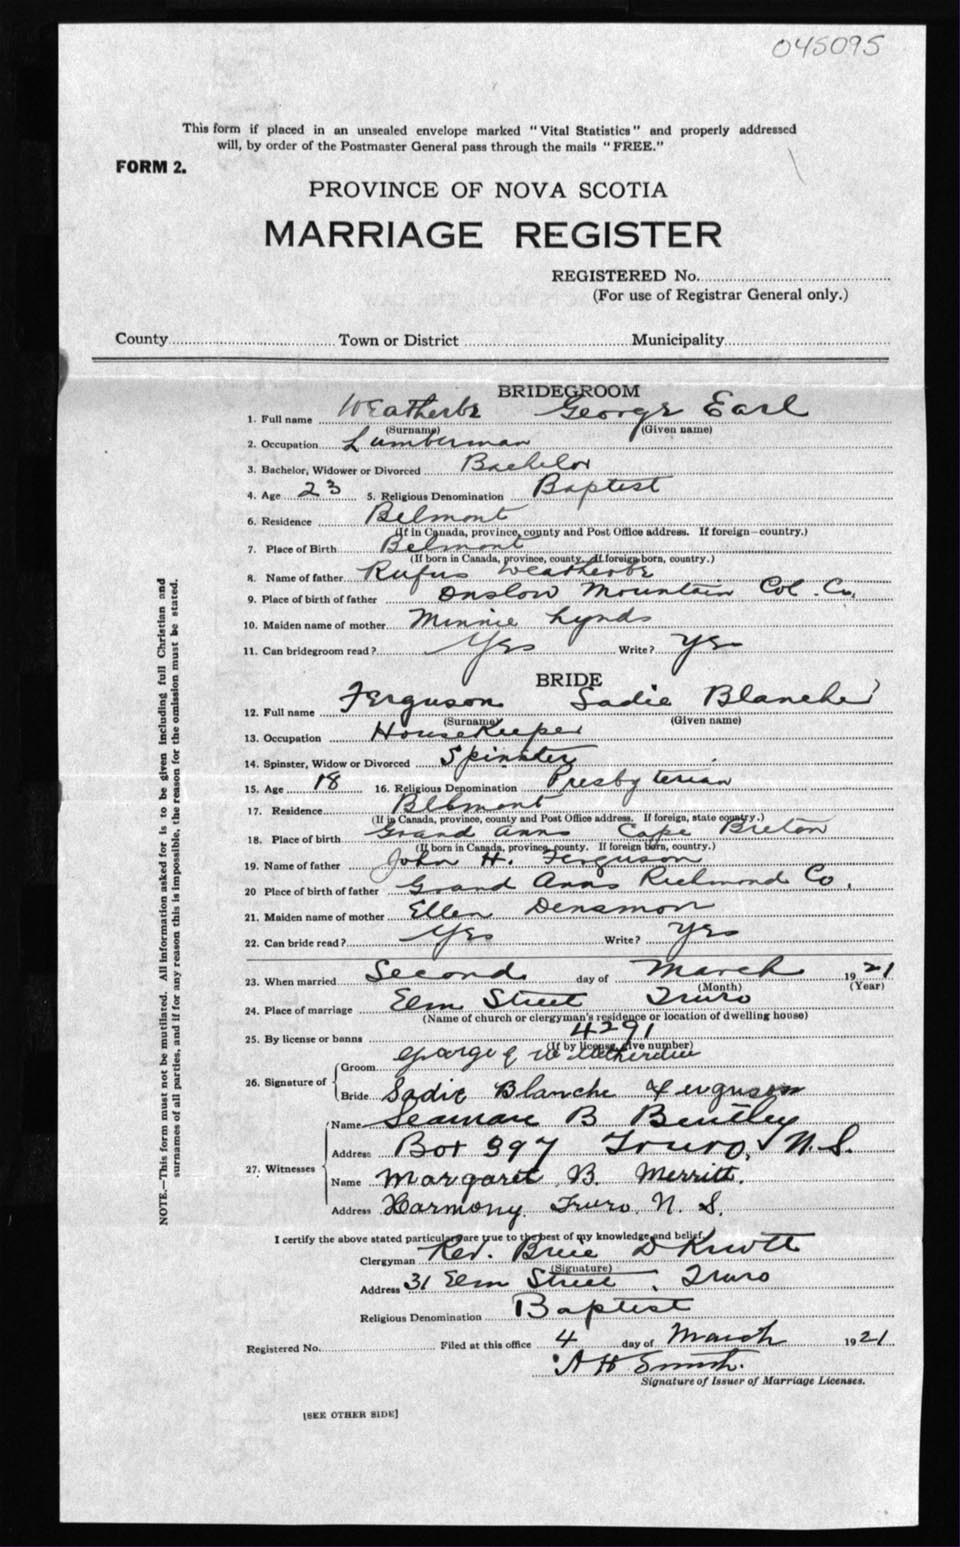 045095
This form if placed in an unsealed envelope marked "Vital Statistics" and properly addressed
will, by order of the Postmaster General pass through the mails "FREE."
FORM 2.
PROVINCE OF NOVA SCOTIA
MARRIAGE REGISTER
REGISTERED No.
(For use of Registrar General only.)
County Town or District Municipality
BRIDEGROOM
1. Full name Weatherbe George Earl
(Surname) (Given name)
2. Occupation Lumberman
3. Bachelor, Widower or Divorced Bachelor
4. Age 23 5. Religious Denomination Baptist
6. Residence Belmont
(If in Canada, province, county and Post Office address. If foreign—country.)
7. Place of Birth Belmont
(If born in Canada, province, county. If foreign born, country.)
8. Name of father Rufus Weatherbe
9. Place of birth of father Onslow Mountain Col. Co.
10. Maiden name of mother Minnie Lynds
11. Can bridegroom read? Yes Write? Yes
BRIDE
12. Full name Ferguson Sadie Blanche
(Surname) (Given name)
13. Occupation HouseKeeper
14. Spinster, Widow or Divorced Spinster
15. Age 18 16. Religious Denomination Presbyterian
17. Residence Belmont
(If in Canada, province, county and Post Office address. If foreign, state country.)
18. Place of birth Grand Anns Cape Breton
(If born in Canada, province, county. If foreign born, country.)
19. Name of father John H. Ferguson
20 Place of birth of father Grand Anns Richmond Co.
21. Maiden name of mother Ellen Densmor
22. Can bride read? Yes Write? Yes
23. When married Second day of March 1921
(Month) (Year)
24. Place of marriage Elm Street Truro
(Name of church or clergyman's residence or location of dwelling house)
25. By license or banns 4291
(If by license, give number)
26. Signature of Groom George E
Bride Sadie Blanche Ferguson
27. Witnesses Name Seaman B Bentley
Address Box 397 Truro, N.S.
Name Margaret B. Merritt.
Address Harmony. Truro. N. S.
I certify the above stated particulars are true to the best of my knowledge and belief.
Clergyman Rev. D
(Signature)
Address 31 Elm Street, Truro
Religious Denomination Baptist
Registered No. Filed at this office 4 day of March 1921
A H Smith.
Signature of Issuer of Marriage Licenses.
[SEE OTHER SIDE]
NOTE.—This form must not be mutilated. All information asked for is to be given including full Christian and
surnames of all parties, and if for any reason this is impossible, the reason for the omission must be stated.